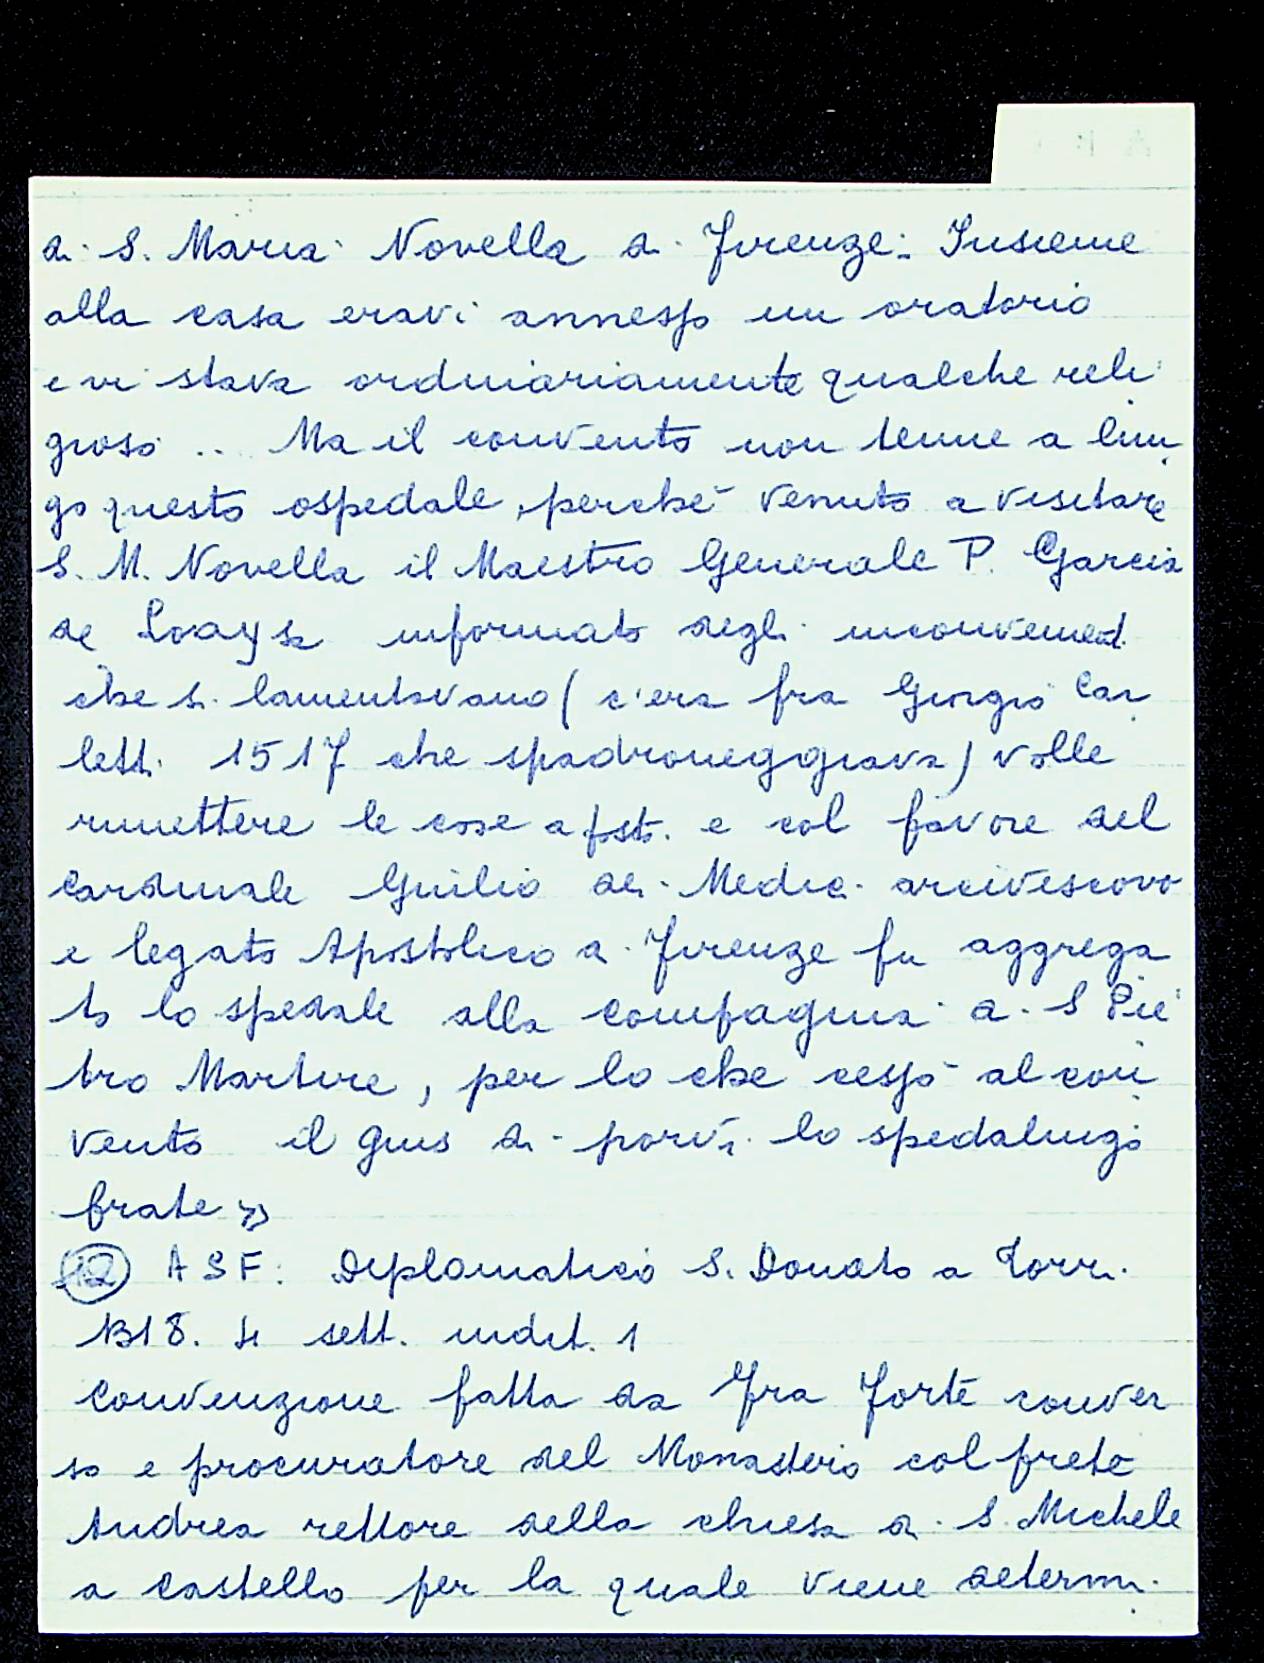 di S. Maria Novella di Firenze. Insieme
alla casa eravi annesso un oratorio
e vi stava ordinariamente qualche reli
gioso .. Ma il convento non tenne a lun
go questo ospedale, perché venuto a visitare
S. M. Novella il Maestro Generale P. Garcia
de Loaysa informato degli inconvenienti
che si lamentavano (c'era fra Giorgio Car
letti 1517 che spadroneggiava) volle
rimettere le cose a posto e col favore del
Cardinale Giulio de' Medici arcivescovo
e legato Apostolico a Firenze fu aggrega
to lo spedale alla compagnia di S Pie
tro Martire, per lo che cessò al con
vento il gius di porvi lo spedalingo
frate »
12 ASF: Diplomatico S. Donato a Torri
1318. 4 sett. indit. 1
Convenzione fatta da Fra Forte conver
so e procuratore del Monastero col prete
Andrea rettore della chiesa di S. Michele
a Castello per la quale viene determi